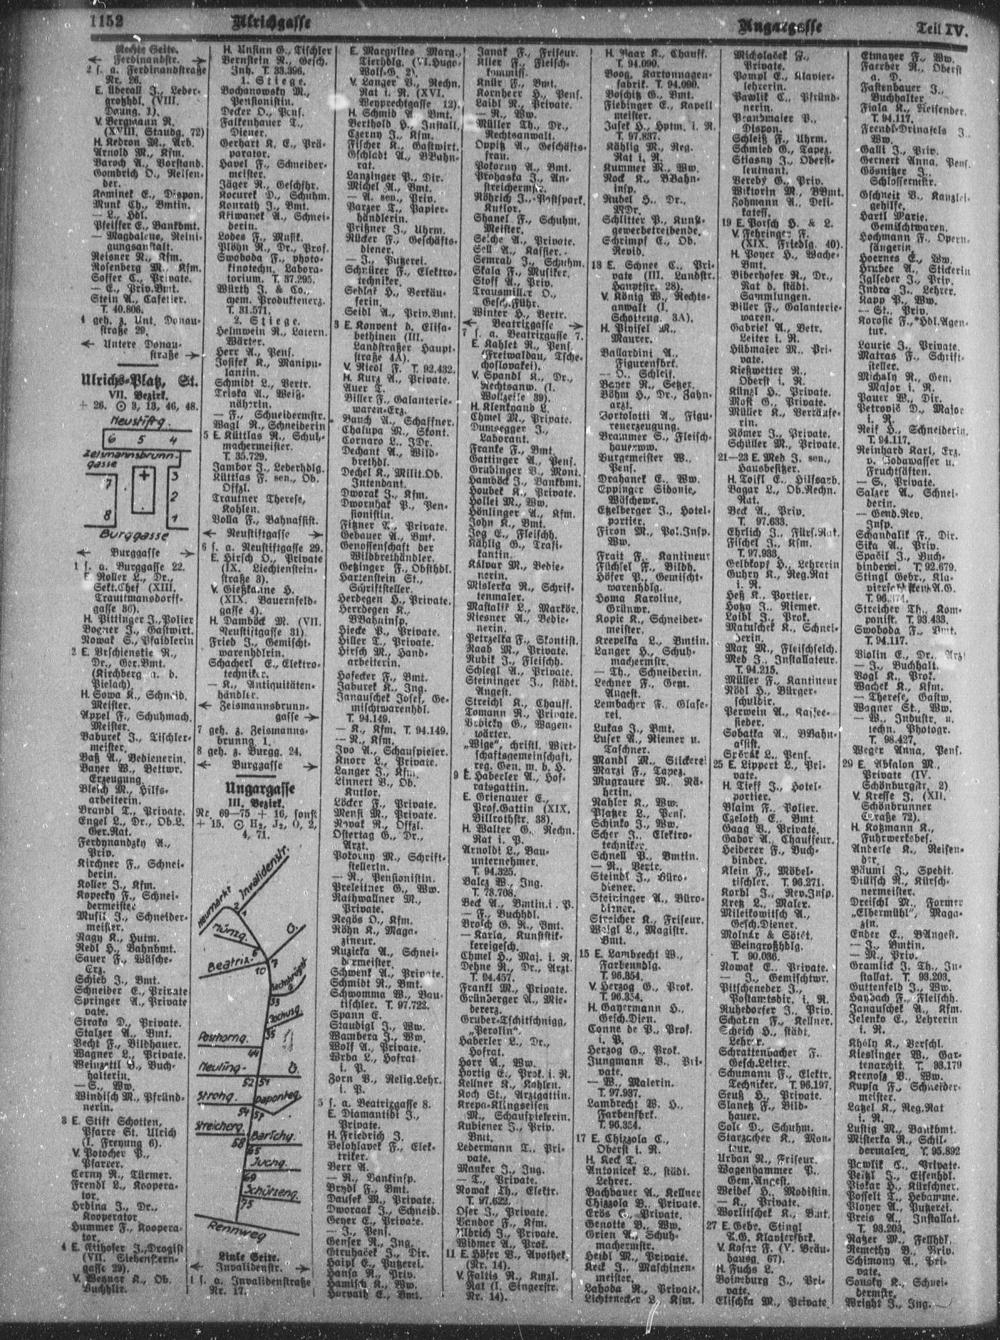 1152
Ulrichgasse
Ungargasse
Teil IV.
Rechte Seite.
Ferdinandstr.
2 s. a. Ferdinandstraße
Nr. 26.
E. Überall J., Leder-
großhdl. (VIII.
V. Bergmann R.
(XVIII, Staudg. 72)
H. Kedron M., Arb.
Arnold M., Kfm.
Baroch A., Vorstand.
Gombrich O., Reisen-
der.
Kominek E., Dispon.
Munk Th., Bmtin.
— L., Hdl.
Pfeiffer E., Bankbmt.
— Magdalene, Reini-
gungsanstalt.
Reisner N., Kfm.
Rosenberg M., Kfm.
Safier C., Private.
— E., Priv.Bmt.
Stein A., Cafetier.
T. 40.806.
4 geh. z. Unt. Donau-
straße 29.
Untere Donau-
straße
Ulrichs-Platz, St.
VII. Bezirk.
+ 26. ⊙ 3, 13, 46, 48.
Neustiftg.
6 5 4
Zeismannsbrunn-
gasse
7
3
2
8
1
Burggasse
Burggasse
1 s. a. Burggasse 22.
E. Roller L., Dr.,
Sekt.Chef (XIII,
Trauttmansdorff-
gasse 36).
H. Pittinger J., Polier
Bogner J., Gastwirt.
Nowak S., Pfaidlerin.
2 E. Brschienetie N.,
Dr., Ger.Bmt.
(Kirchberg a. d.
Pielach)
H. Sowa K., Schneid.
Meister.
Appel F., Schuhmach.
Meister.
Baburek J., Tischler-
meister.
Baß A., Bedienerin.
Bayer W., Bettwr.
Erzeugung.
Bleich M., Hilfs-
arbeiterin.
Brandl T., Private.
Engel L., Dr., Ob.L.
Ger.Rat.
Ferdynandzky A.,
Priv.
Kirchner F., Schnei-
derin.
Koller J., Kfm.
Kopecky F., Schnei-
dermeister.
Musil J., Schneider-
meister.
Nagy K., Hutm.
Redl H., Bahnbmt.
Sauer F., Wäsche-
Erz.
Schieb J., Bmt.
Schneider E., Private
Springer A., Private
Straka D., Private.
Stalzer A., Bmt.
Vecht F., Bildhauer.
Wagner L., Private.
Weinzettl V., Buch-
halterin.
— S., Ww.
Windisch M., Pfründ-
nerin.
3 E. Stift Schotten,
Pfarre St. Ulrich
(I. Freyung 6).
V. Potocher P.,
Pfarrer.
Cerny R., Türmer.
Frendl L., Koopera-
tor.
Hrdina J., Dr.,
Kooperator
Hummer F., Koopera-
tor.
4 E. Mithofer J., Drogist
(VII, Siebenstern-
gasse 29).
V. Weyner K., Ob.
Buchhltr.
H. Unfinn G., Tischler
Bernstein R., Gesch.
Inh. T. 33.396.
1. Stiege.
Bochanowsky M.,
Pensionistin.
Decker D., Pens.
Falkenhauer T.,
Diener.
Gerhart K. E., Prä-
parator.
Havel F., Schneider-
meister.
Jäger R., Geschfhr.
Kocurek D., Schuhm.
Konrath J., Bmt.
Kriwanek A., Schnei-
derin.
Lobes F., Musik.
Plöhn R., Dr., Prof.
Swoboda F., photo-
kinotechn. Labora-
torium. T. 37.295.
Würth J. & Co.,
chem. Produktenerz.
T. 31.571.
2. Stiege.
Helmwein R., Latern.
Wärter.
Herr A., Pens.
Jossek K., Manipu-
lantin.
Schmidt L., Vertr.
Triska A., Weiß-
nähterin.
— F., Schneidermstr.
Wagl R., Schneiderin
5 E. Küttlas R., Schuh-
machermeister.
T. 35.729.
Jambor J., Lederhdlg.
Küttlas F. sen., Ob.
Offzl.
Trautner Therese,
Kohlen.
Volla F., Bahnassist.
Neustiftgasse
6 s. a. Neustiftgasse 29.
E. Hirsch O., Private
(IX. Liechtenstein-
straße 3).
V. Giestanne H.
(XIX. Bauernfeld-
gasse 4).
H. Damböck M. (VII.
Neustiftgasse 31).
Fried J., Gemischt-
warenhdlrin.
Schacherl E., Elektro-
techniker.
— K., Antiquitäten-
händler.
Zeismannsbrunn-
gasse
7 geh. z. Zeismanns-
brunng. 1.
8 geh. z. Burgg. 24.
Burggasse
Ungargasse
III. Bezirk.
Nr 69—75 + 16, sonst
+ 15. ⊙ H₂, J₂, O, 2,
4, 71.
Neumarkt
Invalidenstr.
Münzg.
Beatrix.
10
O.
33
Sechskrügel
Posthorng.
Jochusg.
35
44
Neuling-
O.
52 51
Strohg.
Dapontog.
54 57
Streicherg.
58
Barichg.
65
Juchg.
69
Schützeng.
75
Rennweg
Linke Seite.
Invalidenstr.
1 s. a. Invalidenstraße
Nr. 17.
E. Margulies Marg.,
Tierhdlg. (VI. Hugo-
Wolf-G. 2).
V. Langer V., Rechn.
Rat i. R. (XVI.
Weyprechtgasse 12).
H. Schmid A., Bmt.
Berthold H., Install.
Czerny J., Kfm.
Fischer K., Gastwirt.
Gschladt A., BBahn-
rat.
Lanzinger P., Dir.
Michel A., Bmt.
— A. sen., Priv.
Parzer T., Papier-
händlerin.
Prißner J., Uhrm.
Rücker F., Geschäfts-
diener.
— J., Putzerei.
Schrürer F., Elektro-
techniker.
Sedlak H., Verkäu-
ferin.
Seidl A., Priv.Bmt.
3 E. Konvent d. Elisa-
bethinen (III.
Landstraßer Haupt-
straße 4A).
V. Riedl F. T. 92.432.
H. Kurz A., Private.
Auer T.
Biller F., Galanterie-
waren-Erz.
Bauch A., Schaffner.
Chalupa M., Skont.
Cornaro L., JDr.
Dechant A., Wild-
brethdl.
Dechel K., Milit.Ob.
Intendant.
Dworak J., Kfm.
Dwornhak P., Pen-
sionistin.
Fitzner T., Private.
Gebauer A., Bmt.
Genossenschaft der
Wildbrethändler.
Getzinger F., Obsthdl.
Hartenstein St.,
Schriftsteller.
Herdegen H., Private.
Herrdegen K.,
BBahninsp.
Hiecke P., Private.
Hiller T., Private.
Hirsch M., Hand-
arbeiterin.
Hofecker F., Bmt.
Jaburek K., Ing.
Janauschek Josef, Ge-
mischtwarenhdl.
T. 94.149.
— K., Kfm. T. 94.149.
— R., Kfm.
Ivo A., Schauspieler.
Knorr L., Private.
Langer J., Kfm.
Linnert V., Ob.
Kutlor.
Löcker F., Private.
Mensi M., Private.
Novak R., Offzl.
Ostertag G., Dr.,
Arzt.
Pokorny M., Schrift-
stellerin.
— R., Pensionistin.
Preleitner G., Ww.
Rathwallner M.,
Private.
Regös O., Kfm.
Röhn K., Maga-
zineur.
Ruzicka A., Schnei-
dermeister.
Schwenk A., Private.
Schmidt R., Bmt.
Schwomma W., Bau-
tischler. T. 97.722.
Spann E.
Staudigl J., Ww.
Wambera J., Ww.
Wolf A., Private.
Wrba L., Hofrat
i. P.
Zorn V., Relig.Lehr.
i. P.
5 s. a. Beatrixgasse 8.
E. Diamantidi J.,
Private.
H. Friedrich J.
Belohlavek F., Elek-
triker.
Berr A.
— R., Bankinsp.
Brydl F., Bmt.
Dausek M., Private.
Dworack J., Schneid.
Geyer E., Private.
— J., Pens.
Genser R., Ing.
Gtruhacek J., Dir.
Haipl E., Putzerei.
Hansa R., Priv.
Hamisch K., Ww.
Horvath E., Bmt.
Janak F., Friseur.
Klier F., Fleisch-
kommiss.
Knür F., Bmt.
Kornherr H., Pens.
Laibl R., Private.
— R., Ww.
Müller Th., Dr.,
Rechtsanwalt.
Oppitz A., Geschäfts-
frau.
Pokorny A., Bmt.
Prohaska J., An-
streichermstr.
Röhrich J., Postspark.
Kutlor.
Shanel F., Schuhm.
Meister.
Seiche A., Private.
Sell A., Kassier.
Semrad J., Schuhm.
Skala F., Musiker.
Stoff A., Priv.
Trausmiller O.,
Gesch.Führ.
Winter H., Vertr.
Beatrixgasse
7 s. a. Beatrixgasse 7.
E. Kahlet R., Pens.
(Freiwaldau, Tsche-
choslowakei).
V. Spandl R., Dr.,
Rechtsanw. (I.
Wollzeile 39).
H. Klenkand L.
Chmel M., Private.
Dumsegger J.,
Laborant.
Franke F., Bmt.
Gattinger A., Pens.
Grubinger V., Mont.
Hamböck J., Bankbmt.
Houbek K., Private.
Hollei M., Ww.
Hönlinger A., Kfm.
John K., Bmt.
Jog E., Fleischh.
Kählig G., Trafi-
kantin.
Kalvar M., Bedie-
nerin.
Misierka R., Schrif-
tenmaler.
Mastalik L., Markör.
Riesner A., Bedie-
nerin.
Petrzelka F., Skontist.
Raab M., Private.
Rubik J., Fleischh.
Schiegl A., Private.
Steininger J., städt.
Angest.
Streichl K., Chauff.
Tomann R., Private.
Vodicky G., Wagen-
wärter.
„Wige“, christl. Wirt-
schaftsgemeinschaft,
reg. Gen. m. b. H.
9 E. Haberler A., Hof-
ratsgattin.
E. Grienauer E.,
Prof.Gattin (XIX,
Billrothstr. 38).
H. Walter G., Rechn.
Rat i. P.
T. 94.325.
Arnoldi L., Bau-
unternehmer.
Balcz W., Ing.
T. 73.708.
Beck A., Bmtin. i. P.
— F., Buchhdl.
Brosch G. R., Bmt.
— Karla, Kunststik-
kereigesch.
Chmel H., Maj. i. R.
Dehne R., Dr., Arzt.
T. 94.457.
Frankl M., Private.
Gründerger A., Mie-
dererz.
Gruber-Tschitschnigg,
„Perolin“.
Haberler L., Dr.,
Hofrat.
Horr A., Ww.
Hortig E., Prok. i. R.
Kellner K., Kohlen.
Koch St., Arztgattin.
Krepa-Klingseisen
M., Schauspielerin.
Kubiener J., Priv.
Bmt.
Ledermann T., Pri-
vate.
Manker J., Ing.
— T., Private.
Nowak Th., Elektr.
T. 97.622.
Oser J., Private.
Vendor F., Kfm.
Ulbrich J., Private.
Widmer A., Prok.
11 E. Höfer V., Apothek.
(Nr. 14).
V. Faltis R., Kinzl.
Rat (I. Singerstr.
Nr. 14).
H. Haar K., Chauff.
T. 94.090.
Boog, Kartonnagen-
fabrik. T. 94.090.
Boschitz G., Bmt.
Fiebinger E., Kapell
meister.
Jasek H., Hptm. i. R.
T. 97.837.
Kählig M., Reg.
Rat i. R.
Kummer M., Ww.
Rock K., BBahn-
insp.
Rudel H., Dr.,
MDr.
Schlitter P., Kunst-
gewerbetreibende.
Schimpf E., Ob.
Revid.
13 E. Schnee C., Pri-
vate (III. Landstr.
Hauptstr. 28).
V. König W., Rechts-
anwalt (I.
Schotteng. 3A).
H. Pinisek M.,
Maurer.
Ballardini A.,
Figurenfbrk.
— O., Schleif.
Bayer R., Setzer.
Böhm H., Dr., Zahn-
arzt.
Bortolotti A., Figu-
renerzeugung.
Brammer S., Fleisch-
hauerww.
Burgemeister W.,
Pens.
Drahanek E., Ww.
Eppinger Sidonie,
Wäschewr.
Etzelberger J., Hotel-
portier.
Firon M., Pol.Insp.
Ww.
Frait F., Kantineur
Füchsel F., Bildh.
Höfer P., Gemischt-
warenhdlg.
Howa Karoline,
Grünwr.
Kopic K., Schneider-
meister.
Krepelka L., Bmtin.
Langer H., Schuh-
machermstr.
— Th., Schneiderin.
Lechner F., Gem.
Angest.
Lembacher F., Glase-
rei.
Lukas J., Bmt.
Luser A., Riemer u.
Taschner.
Mandl M., Stickerei
Marzi F., Tapez.
Mugrauer M., Nä-
herin.
Nahler K., Ww.
Platzer L., Pens.
Schinko J., Ww.
Scher J., Elektro-
techniker.
Schnell P., Bmtin.
— R., Vertr.
Steindl J., Büro-
diener.
Steiringer A., Büro-
diener.
Streicher K., Friseur.
Weigl L., Magistr.
Bmt.
15 E. Lambrecht W.,
Farbenhdlg.
T. 96.354.
V. Herzog G., Prok.
T. 96.354.
H. Gayermann H.,
Gesch.Dien.
Conne de P., Prof.
i. P.
Herzog G., Prok.
Jungmann V., Pri-
vate.
— W., Malerin.
T. 97.937.
Lambrecht W. H.,
Farbenfbrk.
T. 96.354.
17 E. Chizzola C.,
Oberst i. R.
H. Keck T.
Antonicek L., städt.
Lehrer.
Bachbauer A., Kellner
Chizzola B., Private.
Erbs G., Private.
Genotte B., Ww.
Grien A., Schuh-
machermstr.
Heidl M., Private.
Keck J., Maschinen-
meister.
Lahoda R., Private.
Lichtenecker L., Kfm.
Micholaschek F.,
Private.
Pompl E., Klavier-
lehrerin.
Pawlik C., Pfründ-
nerin.
Prandmaier P.,
Dispon.
Schleiß F., Uhrm.
Schmied G., Tapez.
Stiasny J., Oberst-
leutnant.
Verehy G., Priv.
Wiktorin M., BBmt.
Zohmann A., Deli-
katess.
19 E. Porsch H. & L.
V. Fehringer F.
(XIX, Friedlg. 40).
H. Poyer H., Wache-
Bmt.
Biberhofer R., Dr.,
Rat d. städt.
Sammlungen.
Biller F., Galanterie-
waren.
Gabriel A., Vetr.
Leiter i. R.
Hübmaier M., Pri-
vate.
Kießwetter R.,
Oberst i. R.
Künzl H., Private.
Most G., Private.
Müller K., Verkäufe-
rin.
Römer J., Private.
Schüller M., Private.
21—23 E. Med J. sen.,
Hausbesitzer.
H. Toifl E., Hilfsarb.
Bagar L., Ob.Rechn.
Rat.
Beck A., Priv.
T. 97.633.
Ehrlich J., Fürs.Rat.
Fischel J., Kfm.
T. 97.933.
Geldkopf H., Lehrerin
Guhry K., Reg.Rat
i. R.
Heß K., Portier.
Hozn J., Riemer.
Loibl J., Prok.
Matuschek K., Schnei-
derin.
Maz M., Fleischselch.
Med J., Installateur.
T. 94.215.
Müller F., Kantineur
Rödl H., Bürger-
schuldir.
Perwein A., Kaffee-
sieder.
Sobatka A., BBahn-
assist.
Srözak L., Pens.
25 E. Lippert L., Pri-
vate.
H. Tieff J., Hotel-
portier.
Blaim F., Polier.
Czeloth E., Bmt.
Gaag V., Private.
Gador A., Chauffeur.
Heiderer F., Buch-
binder.
Klein F., Möbel-
tischler. T. 96.271.
Korbl J., Rev.Insp.
Kretz L., Maler.
Mileikowitsch A.,
Gesch.Diener.
Molnar & Sötet,
Weingroßhdlg.
T. 90.036.
Nowak E., Private.
— J., Gemischtwr.
Pitscheneder J.,
Postamtsdir. i. R.
Ruhedorfer J., Priv.
Schaten F., Kellner.
Scheich H., städt.
Lehrer.
Schrattenbacher F.,
Gesch.Leiter.
Schumann F., Elektr.
Techniker. T. 96.197.
Seus G., Private.
Slanetz F., Bild-
hauer.
Sole D., Schuhm.
Starzacher K., Mon-
teur.
Urban R., Friseur.
Wagenhammer P.,
Gem.Angest.
Weidel H., Modistin.
— K., Private.
Worlitschek K., Bmt.
27 E. Gebr. Stingl
A.G. Klavierfbrk.
V. Kosar F. (V. Bräu-
hausg. 67).
H. Fuchs L.
Boineburg J., Pri-
vate.
Elischka M., Private.
Etmayer F., Ww.
Farcher R., Oberst
a. D.
Fastenbauer J.,
Buchhalter.
Fiala K., Reisender.
T. 94.117.
Frendl-Drinatels J.,
Ww.
Galli J., Priv.
Gernert Anna, Pens.
Gösnitzer J.,
Schlossermstr.
Gschneit V., Kanzlei-
gehilfe.
Hartl Marie,
Gemischtwaren.
Hochmann F., Opern-
sängerin.
Hoernes E., Ww.
Hrubec A., Stickerin
Igsseder J., Priv.
Indra J., Lehrer.
Kapp P., Ww.
— St., Priv.
Korosie F., Hdl.Agen-
tur.
Laurie J., Private.
Matras F., Schrift-
steller.
Michaln R., Gen.
Major i. R.
Pauer W., Dir.
Petrovic D., Major
i. R.
Reif H., Schneiderin.
T. 94.117.
Reinhard Karl, Erz.
v. Sodawasser u.
Fruchtsäften.
— S., Private.
Salzer A., Schnei-
derin.
— Gend.Rev.
Insp.
Schandalik F., Dir.
Sika A., Priv.
Spacil J., Buch-
binderei. T. 92.679.
Stingl Gebr., Kla-
vierfabrik A.G.
T. 96.374.
Streicher Th., Kom-
ponist. T. 93.433.
Swoboda F., Bmt.
T. 94.117.
Violin E., Dr., Arzt
— J., Buchhalt.
Vogl K., Prok.
Wachek K., Kfm.
— Therese, Gastw.
Wagner St., Ww.
— W., Industr. u.
techn. Photogr.
T. 98.427.
Weger Anna, Pens.
29 E. Abkalon M.,
Private (IV.
Schönburgstr. 2)
V. Kresse J., (XII,
Schönbrunner
Straße 72).
H. Kozmann K.,
Fuhrwerksbes.
Anderle K., Reisen-
der.
Bäuml J., Spedit.
Düllisch R., Kürsch-
nermeister.
Dreischl M., Former
„Elbermühl“, Maga-
zin.
Ender E., BAngest.
— J., Bmtin.
— M., Priv.
Gramlick J. Th., In-
stallat. T. 93.203.
Guttenfeld J., Ww.
Haydach F., Fleischh.
Janauschek A., Kfm.
Jelenko E., Lehrerin
i. R.
Kholy K., Verschl.
Kieslinger W., Gar-
tenarchit. T. 93.179
Krenosz B., Ww.
Kupsa F., Schneider-
meister.
Latzel K., Reg.Rat
i. R.
Lustig M., Bankbmt.
Misterka R., Schil-
dermaler. T. 95.892
Pawlik C., Private.
Petzl J., Eisenhdl.
Piskar H., Kürschner.
Posselt T., Hebamme.
Ployer A., Putzerei.
Preis A., Installat.
T. 93.203.
Ratzer M., Fellhdl.
Remethy B., Priv.
Schimony A., Pri-
vate.
Sousky K., Schnei-
dermstr.
Wright J., Ing.